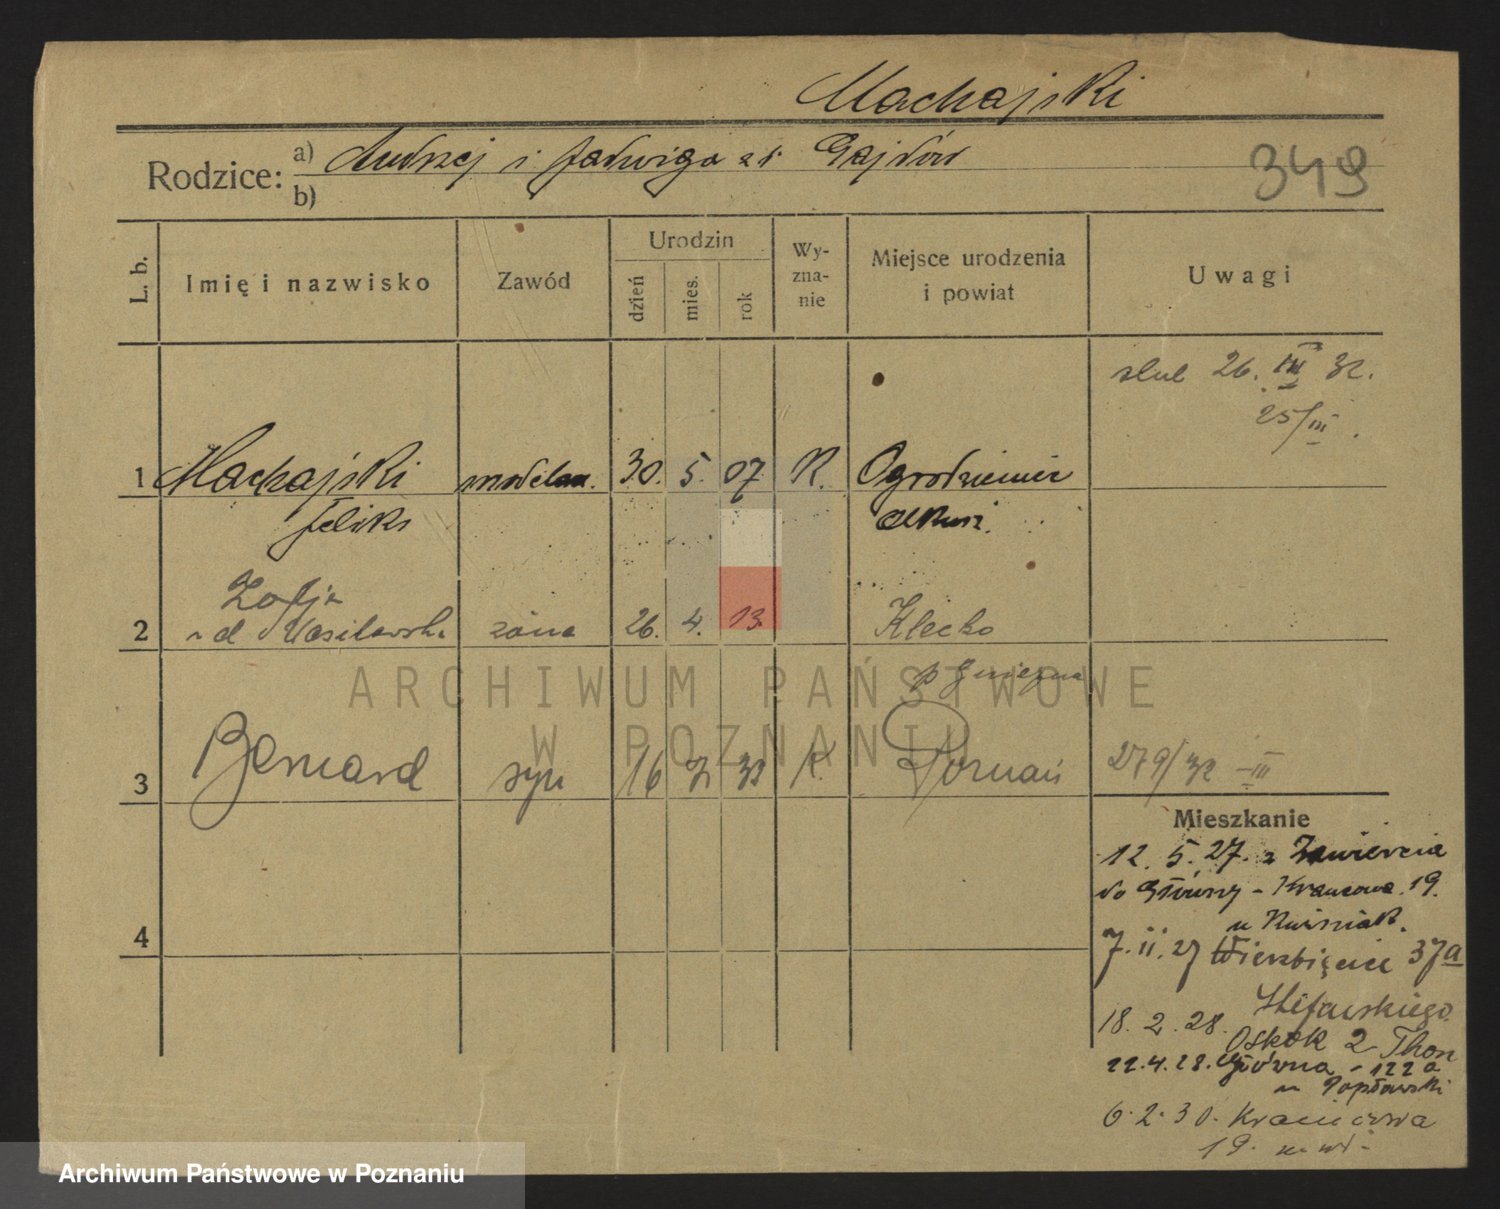 Machajski
Rodzice: a) Andrzej i Jadwiga z d. Gajdów
b)
349
L. b.
Imię i nazwisko
Zawód
Urodzin
dzień
mies.
rok
Wy-
zna-
nie
Miejsce urodzenia
i powiat
Uwagi
ślub 26. III 32.
25/III
1 Machajski modelarz. 30. 5. 07 R. Ogrodzieniec
Feliks Olkusz.
Zofja
2 z d Wasilewska żona 26. 4. 13. Klecko
p Gniezno
3 Bernard syn 16 7 32 R. Poznań 279/32 III
4
Mieszkanie
12. 5. 27. z Zawiercia
do Główny - Krańcowa 19.
u
7. 11. 27 Wierzbięcice 37a
18. 2. 28.
22.4.28. Główna - 122a
u Popławski
6. 2. 30. Krańcowa
19.
ARCHIWUM PAŃSTWOWE
W POZNANIU
Archiwum Państwowe w Poznaniu